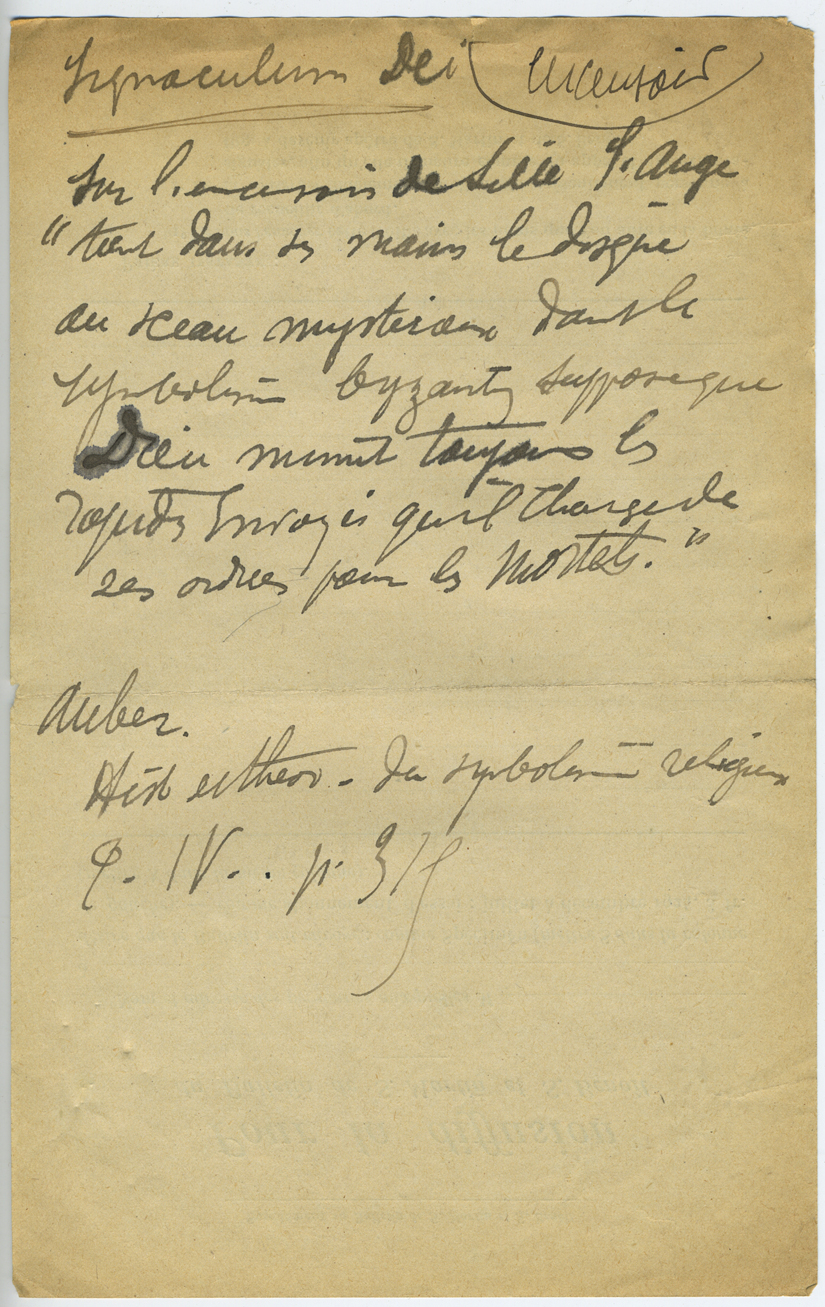 Signaculum Dei (encensoir)
Sur l'encensoir de Lille l'Ange
"tient dans ses mains le disque
au sceau mystérieux dont le
symbolisme byzantin suppose que
Dieu munit toujours les
rapides Envoyés qu'il charge de
ses ordres pour les Mortels."
Auber.
Hist et theor - du symbolisme religieux
T. IV. . p. 315